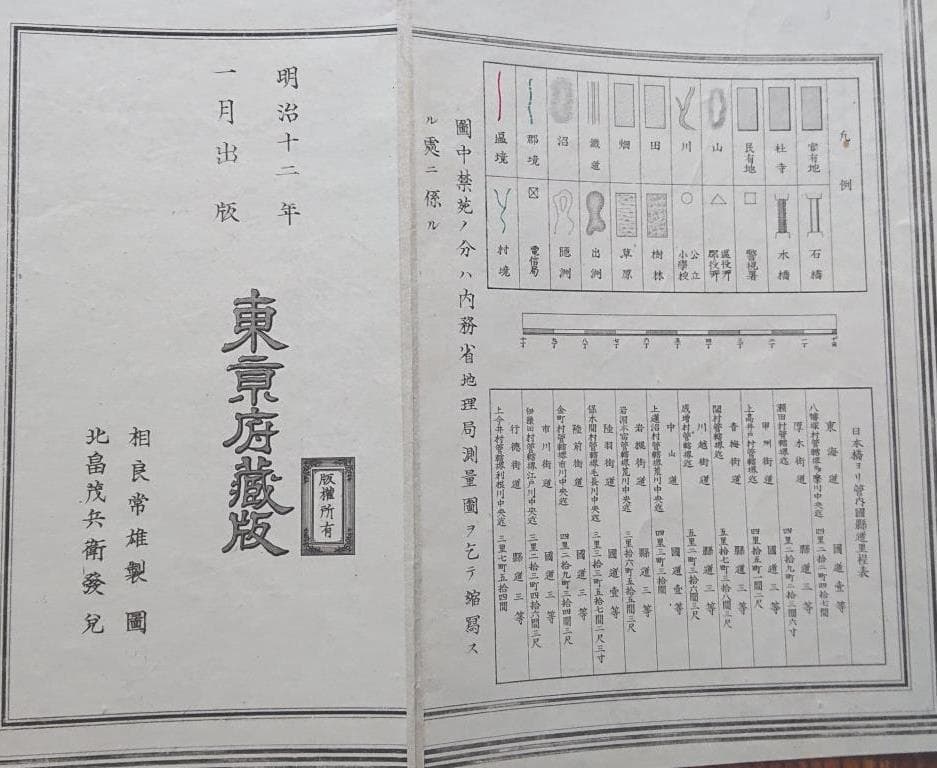 凡例
官有地
社寺
民有地
山
川
田
畑
鐵道
沼
郡境
區境
石橋
木橋
警視署
區役所
郡役所
公立
小學校
樹林
草原
出洲
隠洲
電信局
村境
一丁
二丁
三丁
四丁
五丁
六丁
七丁
八丁
九丁
十丁
日本橋ヨリ管内國縣道里程表
東海道 國道壹等
八幡塚村管轄堺多摩川中央迄 四里二拾二町四拾七間
厚木街道 縣道三等
瀬田村管轄堺迄 四里二拾九町二拾三間六寸
甲州街道 國道三等
上高井戸村管轄堺迄 四里拾五町一間二尺
青梅街道 縣道三等
關村管轄堺迄 五里拾七町三拾八間三尺
川越街道 縣道三等
成增村管轄堺迄 五里二町三拾六間三尺
中山道 國道壹等
上蓮沼村管轄堺荒川中央迄 四里三町三拾間
岩槻街道 縣道三等
岩淵本宿管轄堺荒川中央迄 三里拾六町五拾五間三尺
陸羽街道 國道壹等
保木間村管轄堺毛長川中央迄 三里三拾三町五拾七間二尺三寸
陸前街道 國道三等
金町村管轄堺市川中央迄 四里二拾九町三拾四間三尺
市川街道 國道三等
伊豫田村管轄堺江戸川中央迄 三里二拾三町四拾六間三尺
行德街道 縣道三等
上今井村管轄堺利根川中央迄 三里七町五拾四間
圖中禁苑ノ分ハ内務省地理局測量圖ヲ乞テ縮寫ス
ル處ニ係ル
明治十二年
一月出版
東京府藏版
版權所有
相良常雄製圖
北畠茂兵衛發兌